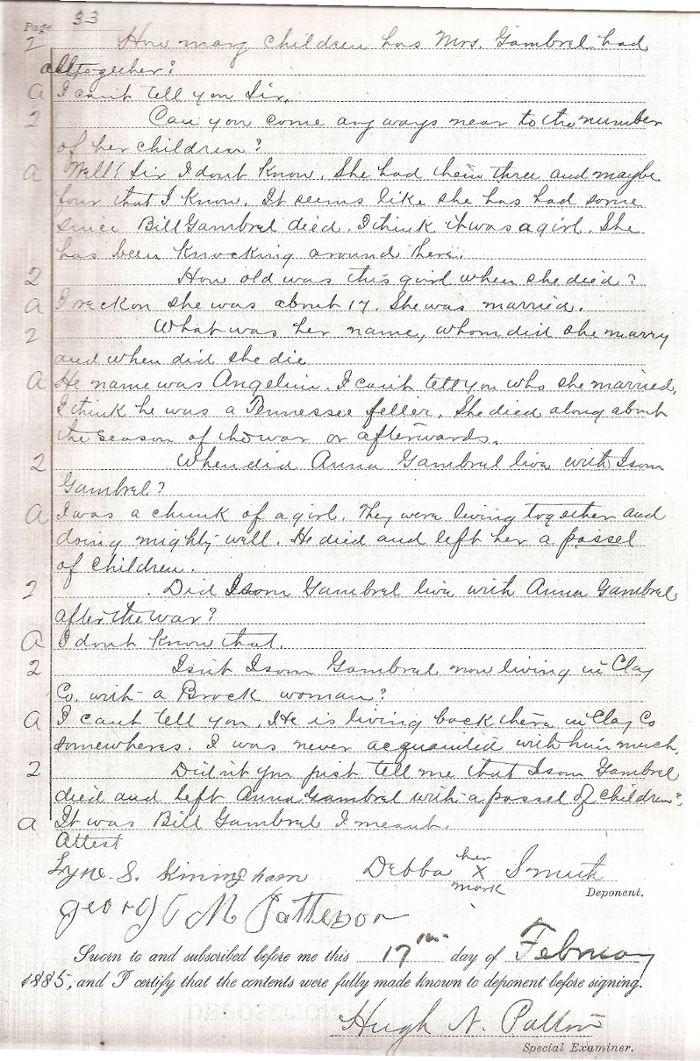 Page 33
Q How many children has Mrs. Gambrel had
alltogether?
A I can't tell you Sir.
Q Can you come any ways near to the number
of her children?
A Well! Sir I dont know. She had them three and maybe
four that I know. It seems like she has had some
since Bill Gambrel died. I think it was a girl. She
has been knocking around here.
Q How old was this girl when she died?
A I reckon she was about 17. She was married.
Q What was her name, whom did she marry
and when did she die
A He name was Angelin. I can't tell you who she married,
I think he was a Tennessee feller. She died along about
the season of the war or afterwards.
Q When did Anna Gambrel live with Isom
Gambrel?
A I was a chunk of a girl. They were living together and
doing mighty well. He died and left her a passel
of children.
Q Did Isom Gambrel live with Anna Gambrel
after the war?
A I dont know that.
Q Isn't Isom Gambrel now living in Clay
Co. with a Brock woman?
A I can't tell you. He is living back there in Clay Co
somewheres. I was never acquainted with him much.
Q Didn't you just tell me that Isom Gambrel
died and left Anna Gambrel with a passel of children?
A It was Bill Gambrel I meant.
Attest
S. Debba her X mark Smith
Deponent.
George M Patterson
Sworn to and subscribed before me this 17th day of February
1885, and I certify that the contents were fully made known to deponent before signing.
Hugh N. Patton
Special Examiner.